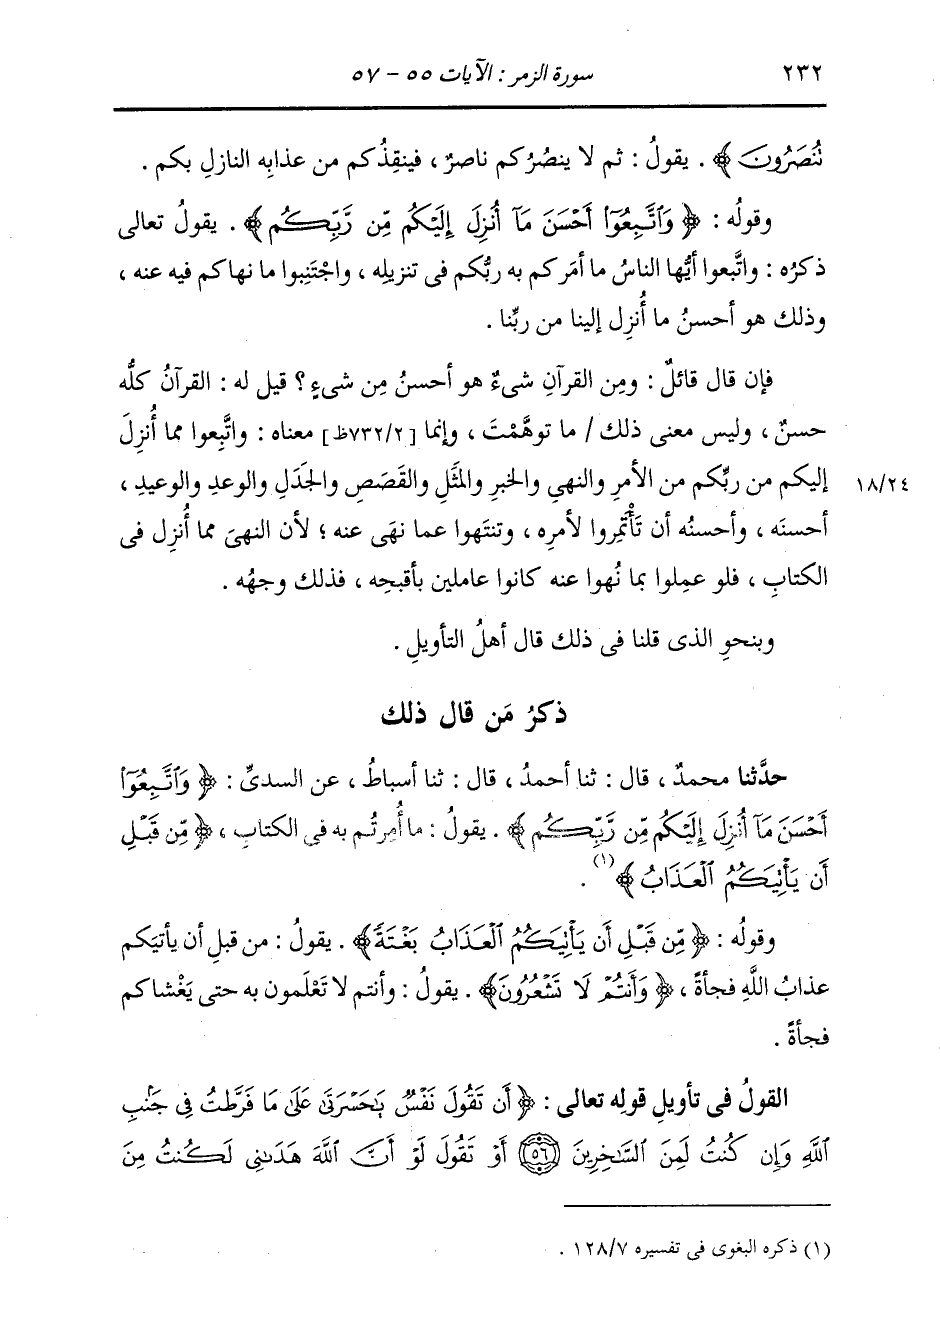 ٢٣٢ سورة الزمر : الآيات ٥٥ - ٥٧
نُنصَرُونَ ﴾ . يقولُ : ثم لا ينصُرُكم ناصرٌ ، فينقِذُكم من عذابِه النازلِ بكم .
وقولُه : ﴿ وَٱتَّبِعُوٓا۟ أَحْسَنَ مَآ أُنزِلَ إِلَيْكُم مِّن رَّبِّكُم ﴾ . يقولُ تعالى
ذكرُه : واتَّبعوا أيُّها الناسُ ما أمَركم به ربُّكم فى تنزيلِه ، واجْتَنِبوا ما نهاكم فيه عنه ،
وذلك هو أحسنُ ما أُنزِل إلينا من ربِّنا .
فإن قال قائلٌ : ومِن القرآنِ شىءٌ هو أحسنُ مِن شىءٍ ؟ قيل له : القرآنُ كلُّه
حسنٌ ، وليس معنى ذلك / ما توهَّمْتَ ، وإنما [٧٣٢/٢ظ] معناه : واتَّبِعوا مما أُنزِلَ
إليكم من ربِّكم من الأمرِ والنهىِ والخبرِ والمثَلِ والقَصَصِ والجَدَلِ والوعدِ والوعيدِ ، ١٨/٢٤
أحسنَه ، وأحسنُه أن تَأْتَمِروا لأمرِه ، وتنتَهوا عما نهَى عنه ؛ لأن النهىَ مما أُنزِل فى
الكتابِ ، فلو عمِلوا بما نُهوا عنه كانوا عاملين بأقبحِه ، فذلك وجهُه .
وبنحوِ الذى قلنا فى ذلك قال أهلُ التأويلِ .
ذكرُ مَن قال ذلك
حدَّثنا محمدٌ ، قال : ثنا أحمدُ ، قال : ثنا أسباطُ ، عن السدىِّ : ﴿ وَٱتَّبِعُوٓا۟
أَحْسَنَ مَآ أُنزِلَ إِلَيْكُم مِّن رَّبِّكُم ﴾ . يقولُ : ما أُمِرتُم به فى الكتابِ ، ﴿ مِّن قَبْلِ
أَن يَأْتِيَكُمُ ٱلْعَذَابُ ﴾(١) .
وقولُه : ﴿ مِّن قَبْلِ أَن يَأْتِيَكُمُ ٱلْعَذَابُ بَغْتَةً﴾ . يقولُ : من قبلِ أن يأتيَكم
عذابُ اللَّهِ فجأةً ، ﴿ وَأَنتُمْ لَا تَشْعُرُونَ﴾ . يقولُ : وأنتم لا تَعْلَمون به حتى يَغْشاكم
فجأةً .
القولُ فى تأويلِ قوله تعالى : ﴿ أَن تَقُولَ نَفْسٌ يَٰحَسْرَتَىٰ عَلَىٰ مَا فَرَّطتُ فِى جَنۢبِ
ٱللَّهِ وَإِن كُنتُ لَمِنَ ٱلسَّٰخِرِينَ ٥٦ أَوْ تَقُولَ لَوْ أَنَّ ٱللَّهَ هَدَىٰنِى لَكُنتُ مِنَ
(١) ذكره البغوى فى تفسيره ١٢٨/٧ .